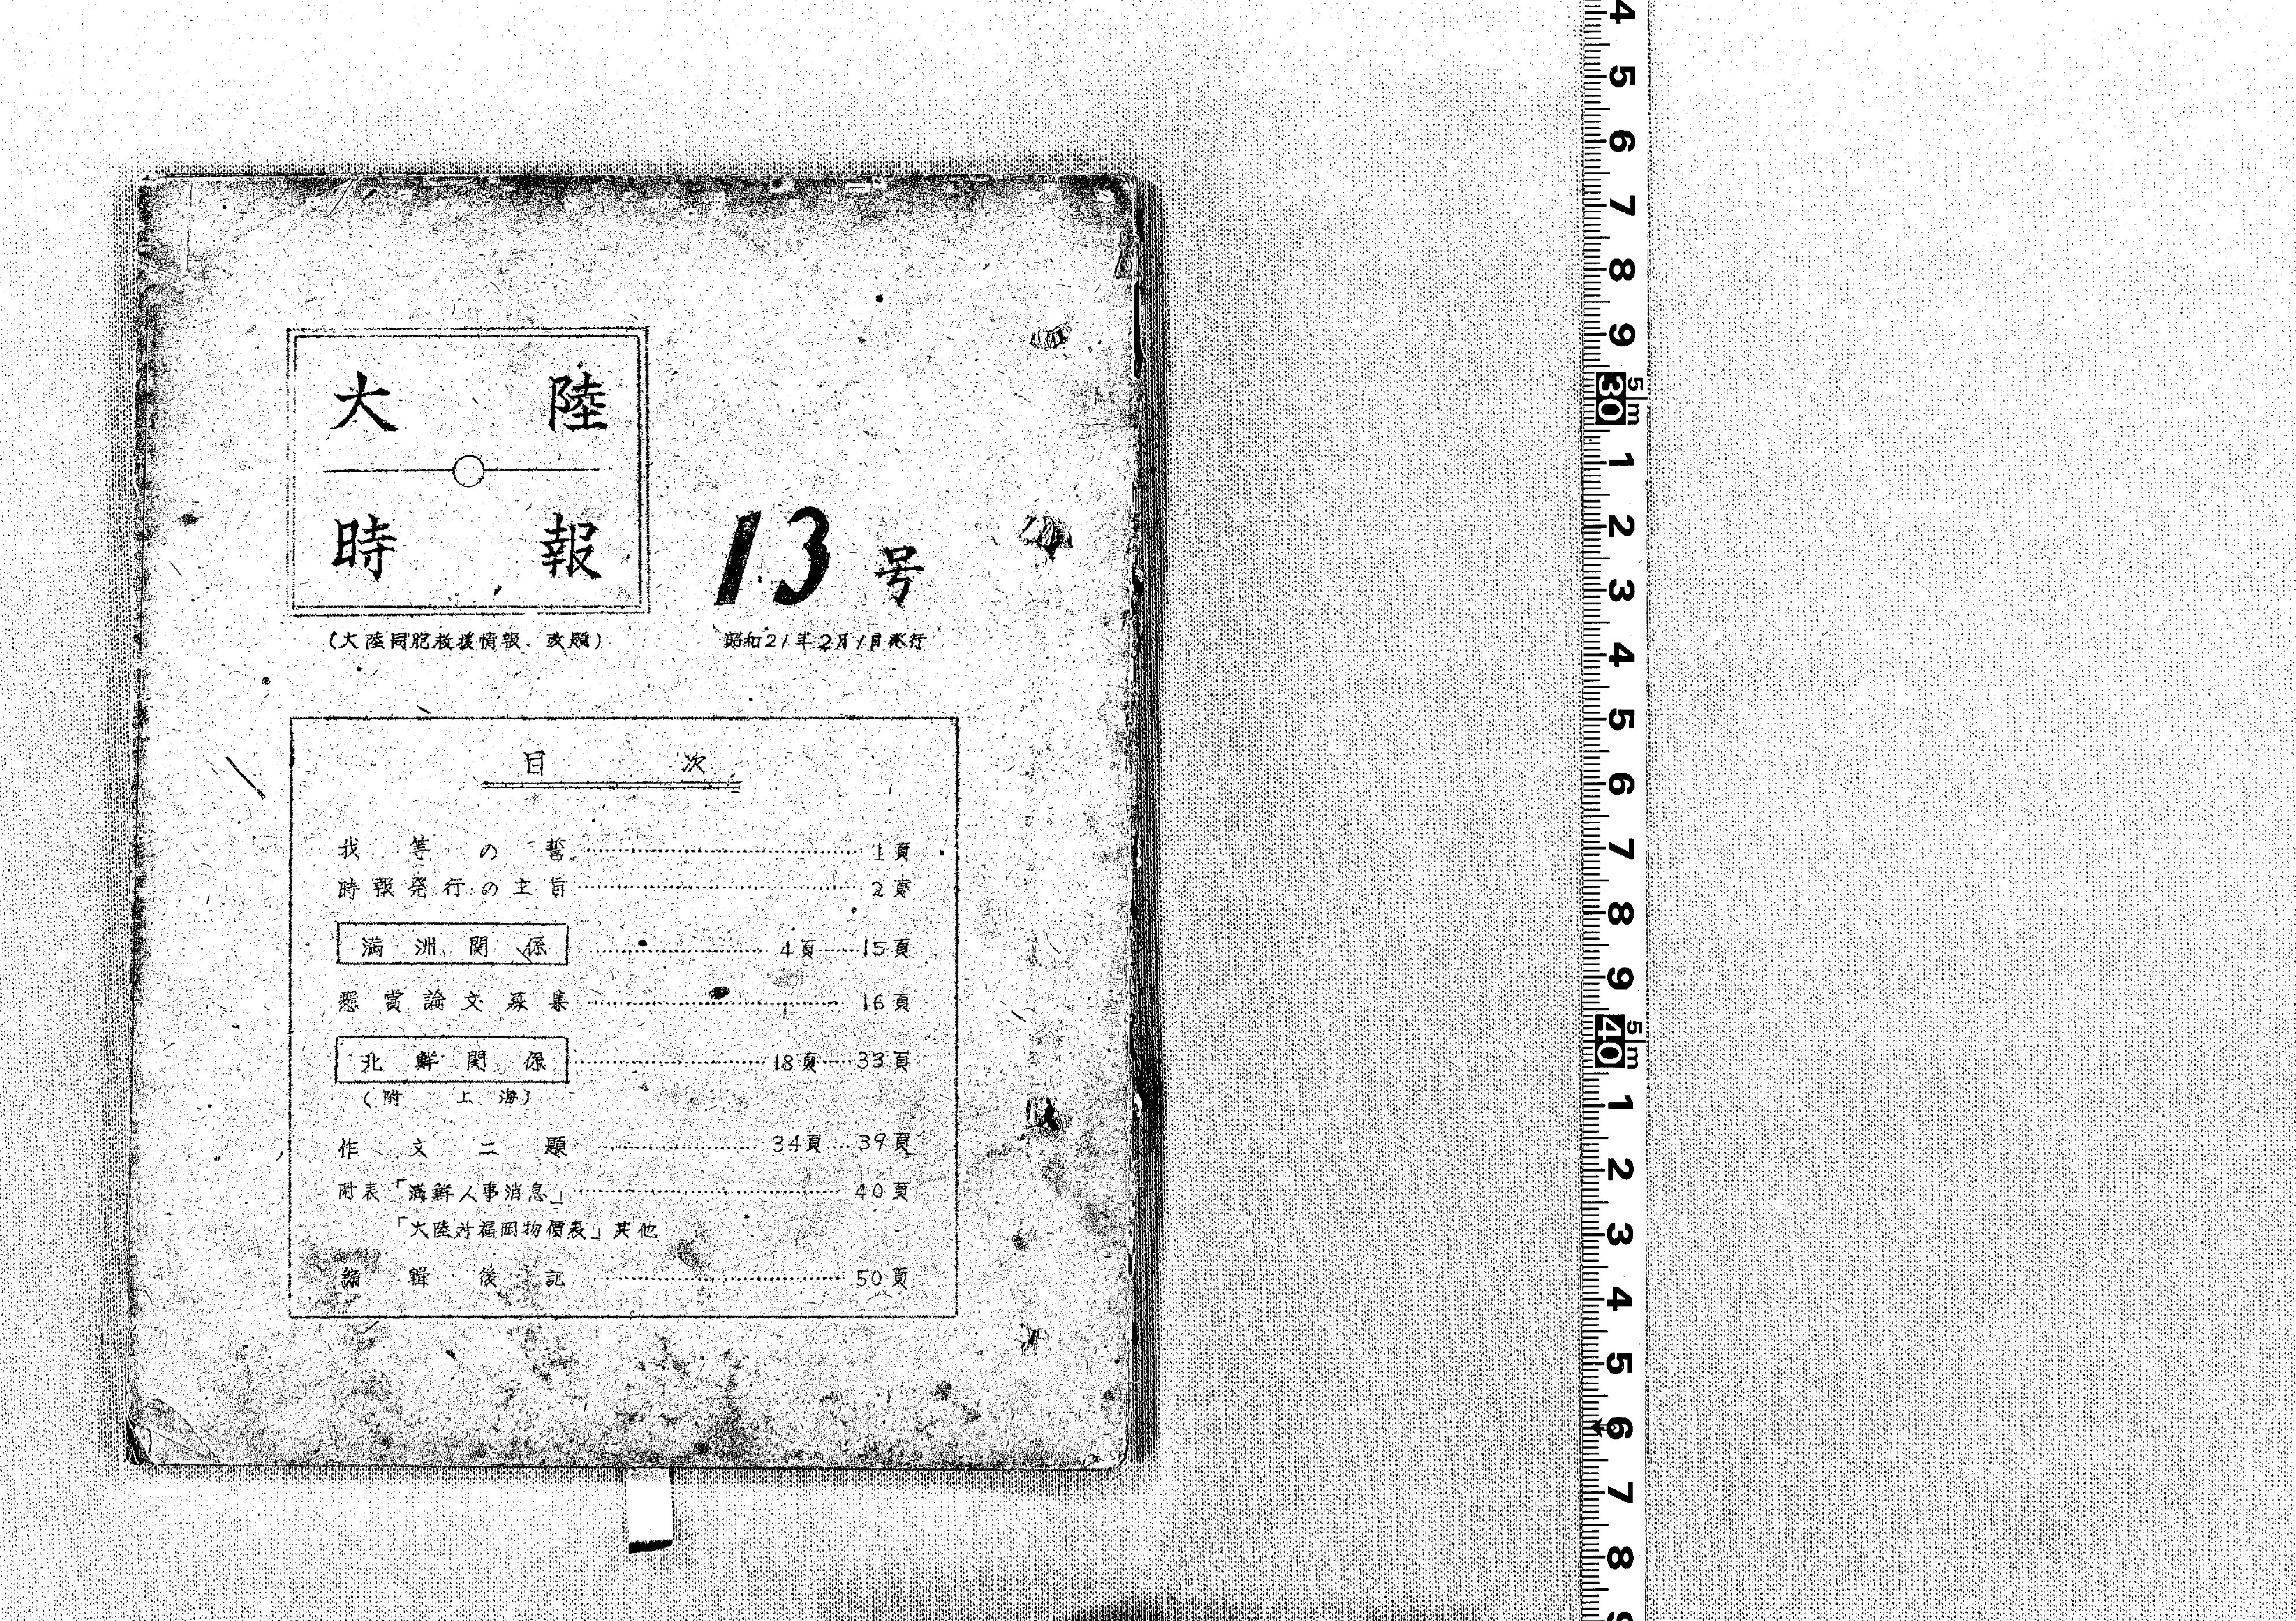 大陸
時報
13号
(大陸同胞救援情報 改題)
昭和21年2月1日発行
目次
我等の誓 1頁
時報発行の主旨 2頁
満洲関係 4頁 15頁
懸賞論文募集 16頁
北鮮関係 18頁 33頁
(附 上海)
作文二題 34頁 39頁
附表「満鮮人事消息」 40頁
「大陸対福岡物價表」其他
編輯後記 50頁
4 5 6 7 8 9 30 1 2 3 4 5 6 7 8 9 40 1 2 3 4 5 6 7 8
5m
5m